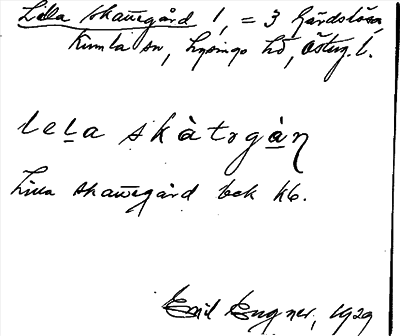 Lilla skattegård 1, = 3 Gärdslösa,
Kumla sn, Lysings hd, Östug. l.
leḻa skàtrgà̱ṉ
Lilla skattegård bek K6.
Emil Engner, 1929